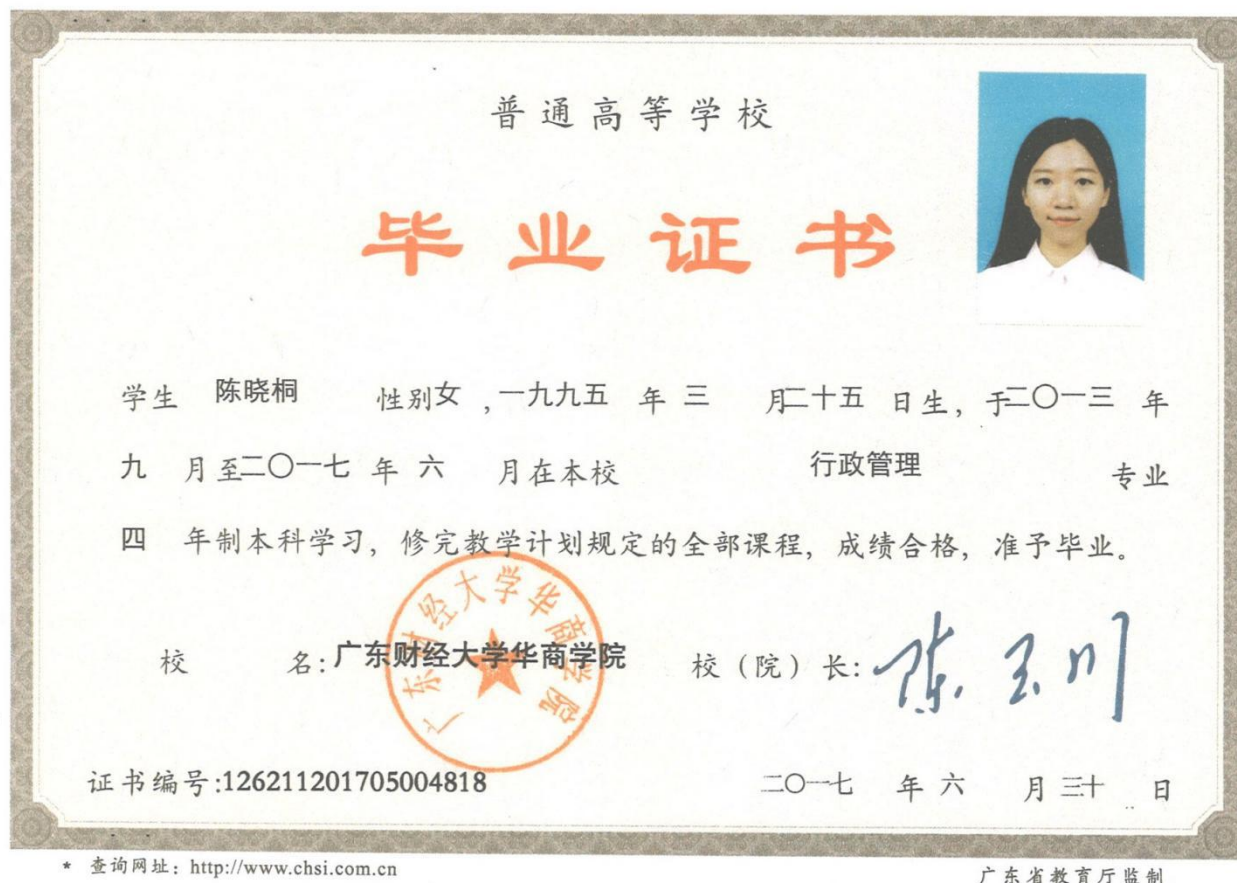 普通高等学校
毕业证书
学生 陈晓桐 性别女,一九九五 年 三 月二十五 日生,于二〇一三 年
九 月至二〇一七 年 六 月在本校 行政管理 专业
四 年制本科学习,修完教学计划规定的全部课程,成绩合格,准予毕业。
广东财经大学华商学院
校 名:广东财经大学华商学院 校(院)长:陈玉川
证书编号:126211201705004818 二〇一七 年 六 月 三十 日
* 查询网址:http://www.chsi.com.cn 广东省教育厅监制